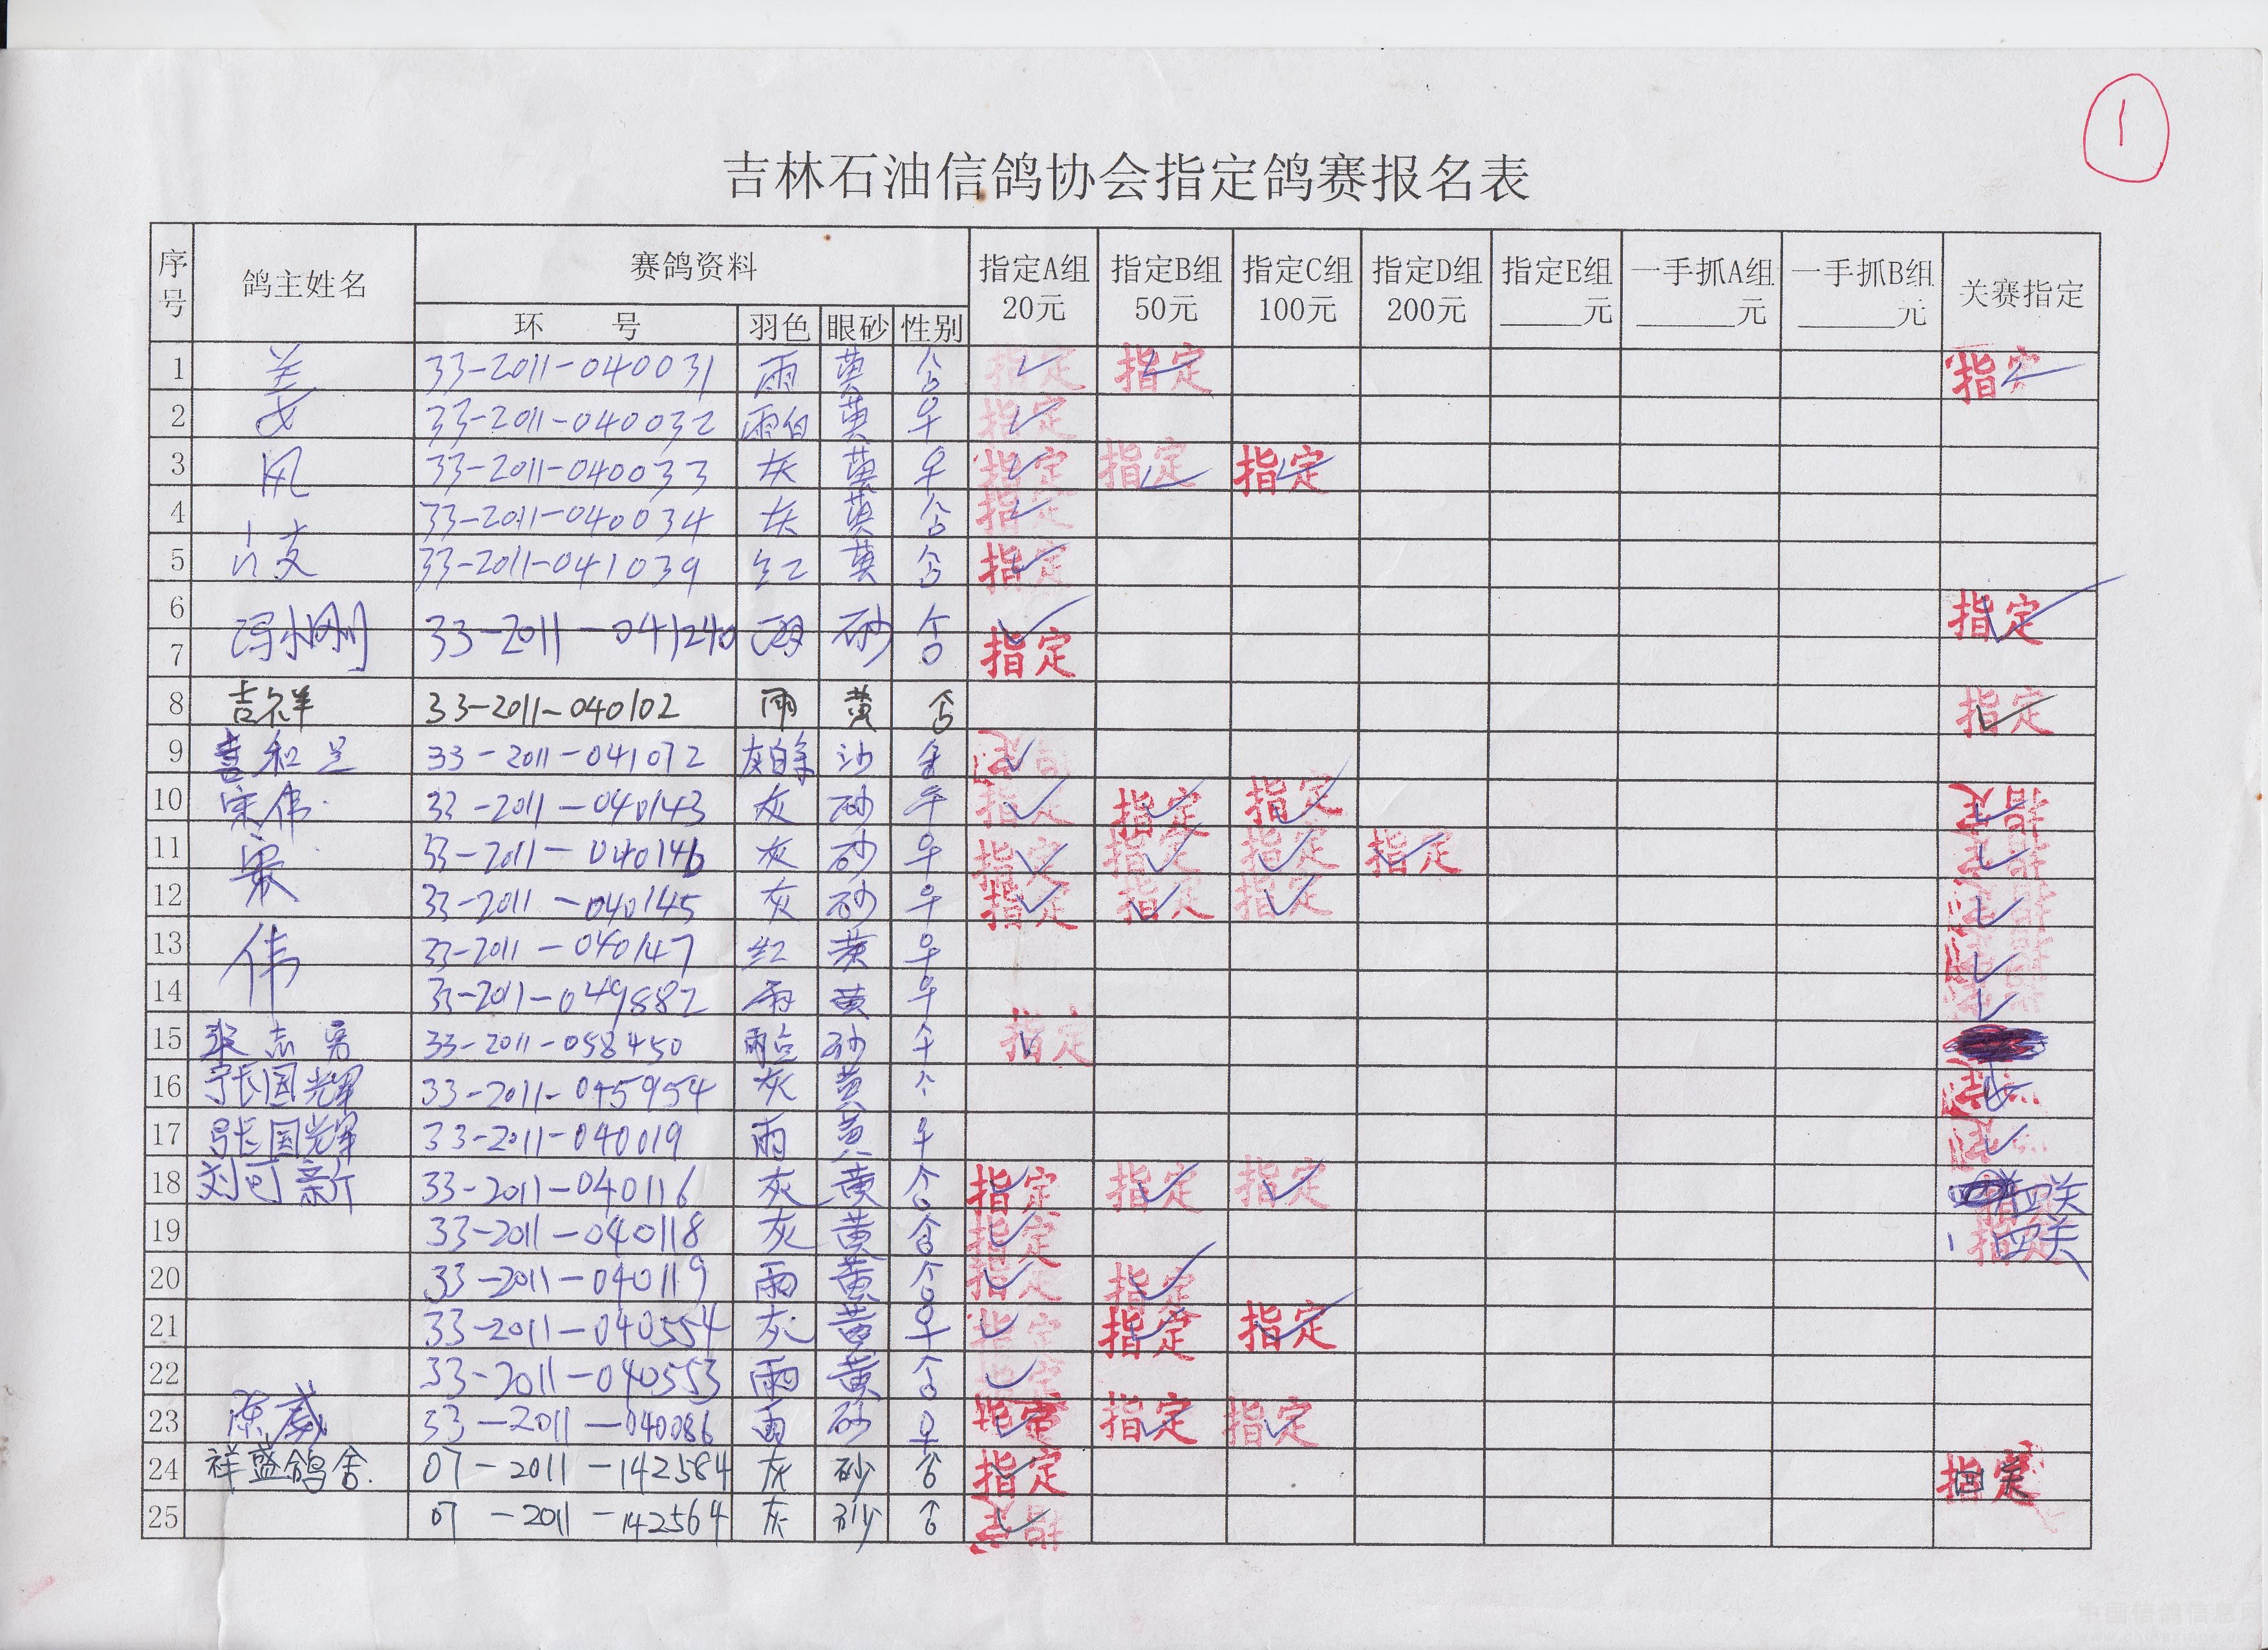 1
吉林石油信鸽协会指定鸽赛报名表
序号 鸽主姓名 赛鸽资料 指定A组 20元 指定B组 50元 指定C组 100元 指定D组 200元 指定E组 ____元 一手抓A组 ____元 一手抓B组 ____元 关赛指定
环 号 羽色 眼砂 性别
1 33-2011-040031 雨 黄 指定 ✓ 指定 ✓ 指定 ✓
2 33-2011-040032 雨白 黄 ♀ 指定 ✓
3 凤 33-2011-040033 灰 黄 ♀ 指定 ✓ 指定 ✓ 指定 ✓
4 33-2011-040034 灰 黄 指定 ✓
5 33-2011-041039 红 黄 指定 ✓
6 冯小刚 33-2011-041240 雨 砂 指定 ✓ 指定 ✓
7
8 吉祥 33-2011-040102 雨 黄 指定 ✓
9 33-2011-041072 沙 指定 ✓
10 宋伟 33-2011-040143 灰 砂 ♀ 指定 ✓ 指定 ✓ 指定 ✓ 指定 ✓
11 宋 33-2011-040146 灰 砂 ♀ 指定 ✓ 指定 ✓ 指定 ✓ 指定 ✓ 指定 ✓
12 33-2011-040145 灰 砂 ♀ 指定 ✓ 指定 ✓ 指定 ✓ 指定 ✓
13 伟 33-2011-040147 红 黄 ♀ 指定 ✓
14 33-2011-049882 雨 黄 ♀ 指定 ✓
15 张志 33-2011-058450 雨点 砂 指定 ✓
16 张国辉 33-2011-045954 灰 黄 指定 ✓
17 张国辉 33-2011-040019 雨 黄 ♀ 指定 ✓
18 刘可新 33-2011-040116 灰 黄 指定 ✓ 指定 ✓ 指定 ✓ 指定 四关
19 33-2011-040118 灰 黄 指定 ✓ 指定 四关
20 33-2011-040119 雨 黄 指定 ✓ 指定 ✓
21 33-2011-040554 灰 黄 ♀ 指定 ✓ 指定 ✓ 指定 ✓
22 33-2011-040553 雨 黄 指定 ✓
23 陈威 33-2011-040086 雨 砂 ♀ 指定 ✓ 指定 ✓ 指定 ✓
24 祥盛鸽舍. 07-2011-142584 灰 砂 指定 ✓ 指定 四关
25 07-2011-142564 灰 砂 指定 ✓
中国信鸽信息网